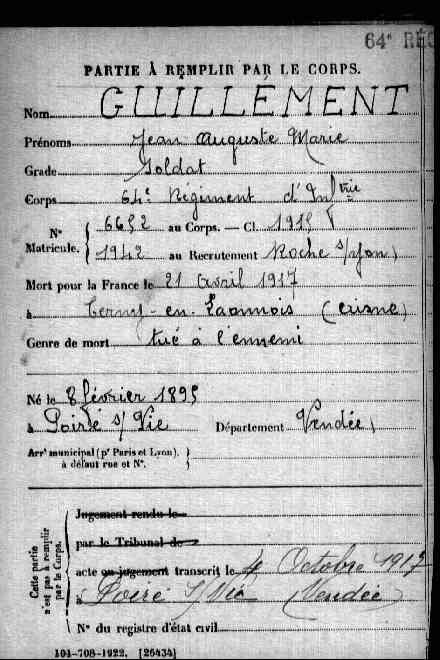 64e RÉG
PARTIE À REMPLIR PAR LE CORPS.
Nom GUILLEMENT
Prénoms Jean Auguste Marie
Grade Soldat
Corps 64e Régiment d'Inftrie
N° Matricule. { 6652 au Corps. — Cl. 1915
1942 au Recrutement Roche s/yon
Mort pour la France le 21 Avril 1917
à Cerny-en-Laonnois (Aisne)
Genre de mort tué à l'ennemi
Né le 8 février 1895
à Poiré s/ Vie Département Vendée
Arrt municipal (pr Paris et Lyon),
à défaut rue et N°.
Cette partie n'est pas à remplir par le Corps.
Jugement rendu le
par le Tribunal de
acte ou jugement transcrit le 4 Octobre 1917
à Poiré S/Vie (Vendée)
N° du registre d'état civil
101-708-1922. [26434]